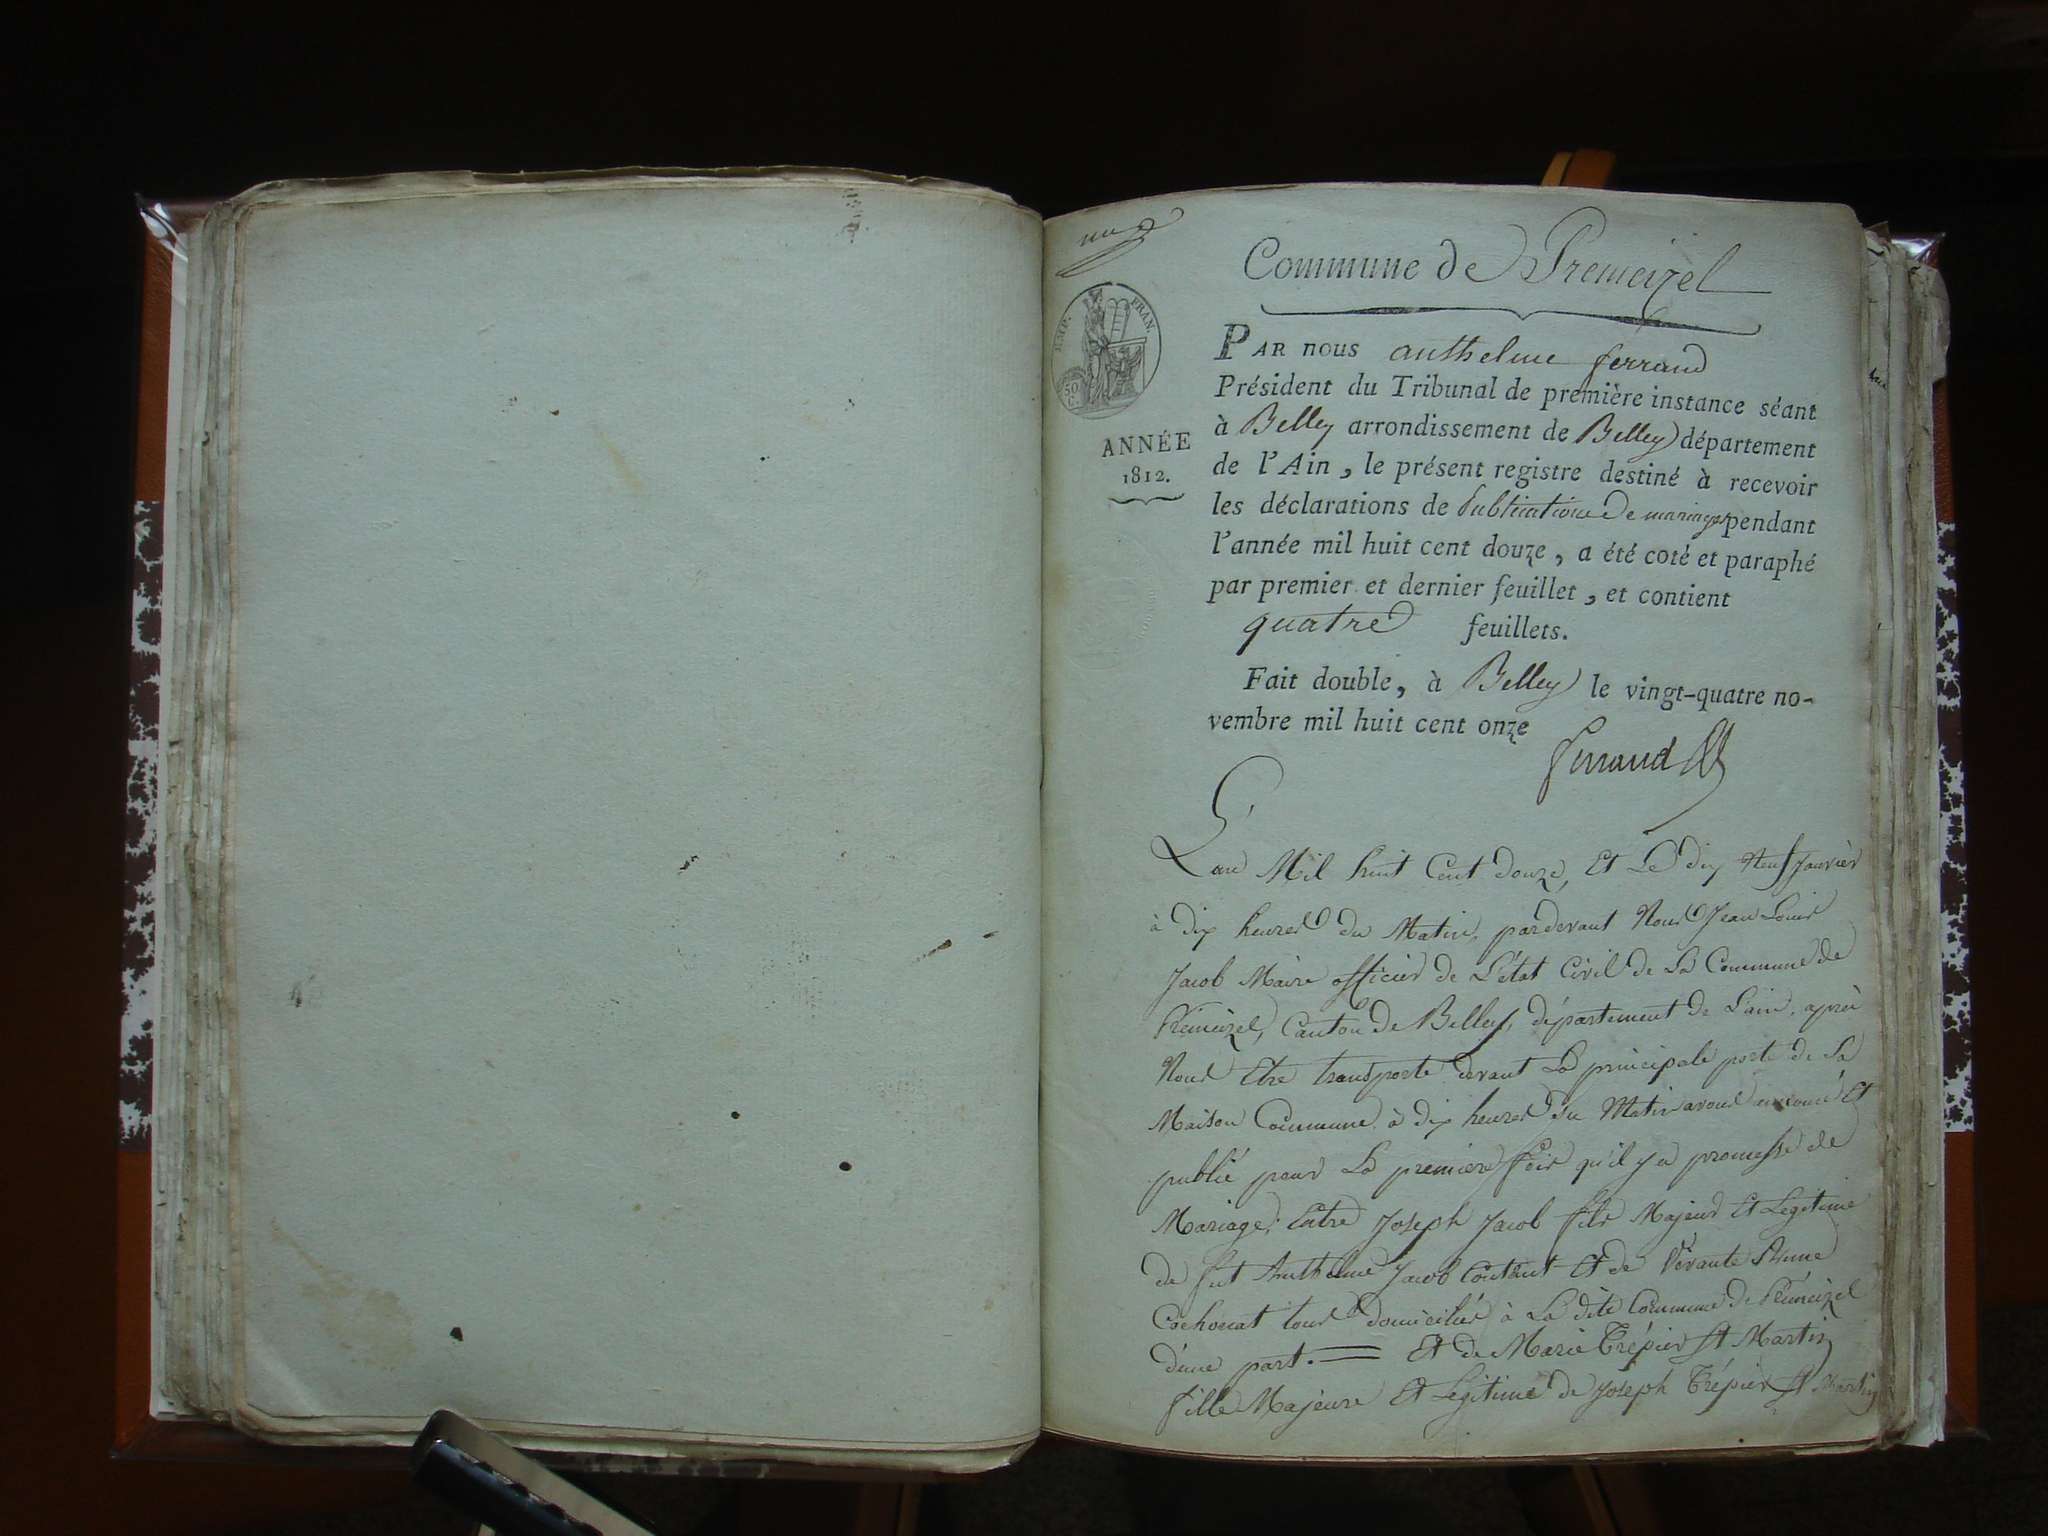 une
Commune de Premeizel
EMP. FRAN.
50 C.
ANNÉE
1812.
PAR NOUS anthelme ferrand
Président du Tribunal de première instance séant
à Belley arrondissement de Belley département
de l'Ain, le présent registre destiné à recevoir
les déclarations de Publications de mariages pendant
l'année mil huit cent douze, a été coté et paraphé
par premier et dernier feuillet, et contient
quatre feuillets.
Fait double, à Belley le vingt-quatre no-
vembre mil huit cent onze
ferrand
L'an Mil huit Cent douze, Et Le dix Neuf Janvier
à dix heures du Matin, pardevant Nous Jean Louis
Jacob Maire officier de L'état Civil de La Commune de
Prémeizel, Canton de Belley, département de L'ain, après
Nous Etre transporté devant La principale porte de La
Maison Commune à dix heures du Matin avons annoncé Et
publié pour La premiere fois qu'il y a promesse de
Mariage; Entre Joseph Jacob fils Majeur Et Legitime
de fut Anthelme Jacob Contant Et de Vivante Anne
Cochonat tous domiciliés à La dite Commune de Prémeizel
d'une part. Et de Marie Trépier St Martin
fille Majeure Et Legitime de Joseph Trépier St Martin